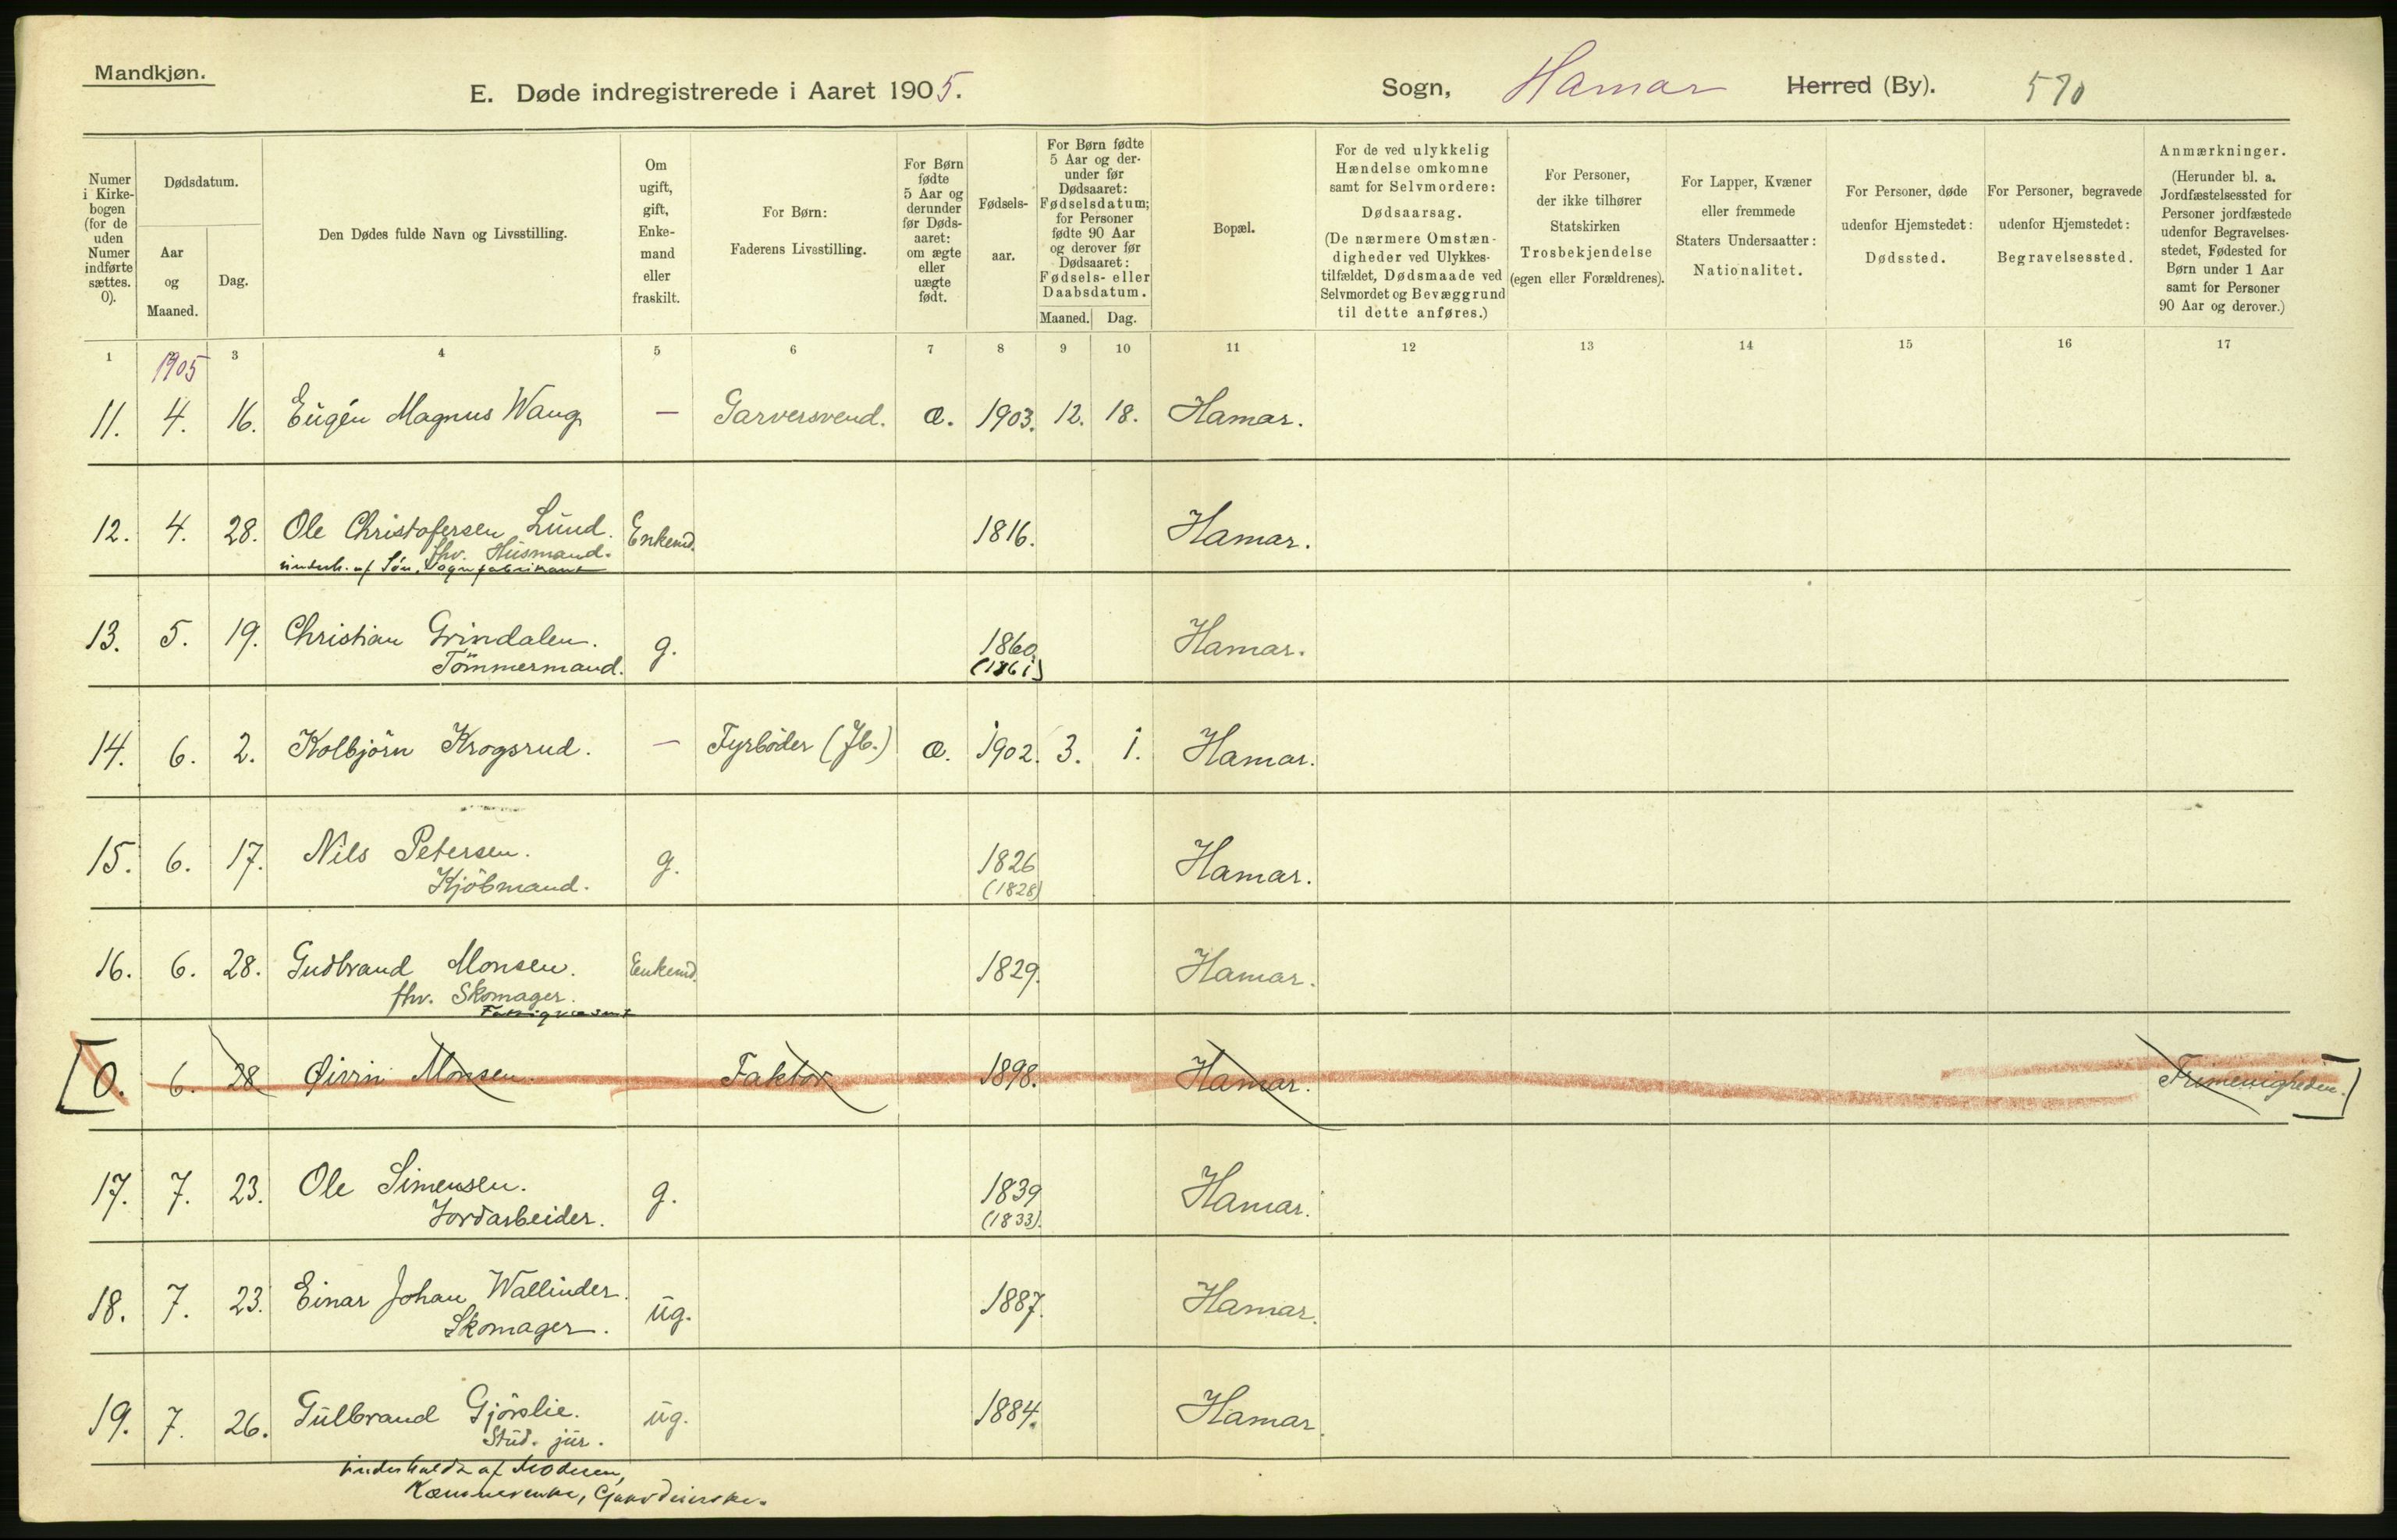 Mandkjøn.
E. Døde indregistrerede i Aaret 1905.
Sogn, Hamar Herred (By). 570
Numer i Kirkebogen (for de uden Numer indførte sættes. 0).
Dødsdatum.
Aar og Maaned.
Dag.
Den Dødes fulde Navn og Livsstilling.
Om ugift, gift, Enkemand eller fraskilt.
For Børn:
Faderens Livsstilling.
For Børn fødte 5 Aar og derunder før Dødsaaret: om ægte eller uægte født.
Fødselsaar.
For Børn fødte 5 Aar og derunder før Dødsaaret: Fødselsdatum; for Personer fødte 90 Aar og derover før Dødsaaret: Fødsels- eller Daabsdatum.
Maaned. Dag.
Bopæl.
For de ved ulykkelig Hændelse omkomne samt for Selvmordere:
Dødsaarsag.
(De nærmere Omstændigheder ved Ulykkestilfældet, Dødsmaade ved Selvmordet og Bevæggrund til dette anføres.)
For Personer, der ikke tilhører Statskirken
Trosbekjendelse
(egen eller Forældrenes).
For Lapper, Kvæner eller fremmede Staters Undersaatter:
Nationalitet.
For Personer, døde udenfor Hjemstedet:
Dødssted.
For Personer, begravede udenfor Hjemstedet:
Begravelsessted.
Anmærkninger.
(Herunder bl. a. Jordfæstelsessted for Personer jordfæstede udenfor Begravelsesstedet, Fødested for Børn under 1 Aar samt for Personer 90 Aar og derover.)
1 3 4 5 6 7 8 9 10 11 12 13 14 15 16 17
1905
11. 4. 16. Eugén Magnus Wang — Garversvend. æ. 1903. 12. 18. Hamar.
12. 4. 28. Ole Christofersen Lund. Enkemd. 1816. Hamar.
fhv. Husmand.
underh. af Søn, Vognfabrikant
13. 5. 19. Christian Grindalen. g. 1860. Hamar.
Tømmermand. (1861)
14. 6. 2. Kolbjørn Krogsrud. — Fyrbøder (Jb.) æ. 1902. 3. 1. Hamar.
15. 6. 17. Nils Petersen. g. 1826 Hamar.
Kjøbmand. (1828)
16. 6. 28. Gudbrand Monsen. Enkemd. 1829. Hamar.
fhv. Skomager.
Fattigvæsnet
[0. 6. 28 Øivin Monsen. Faktor 1898. Hamar. Frimenigheden.]
17. 7. 23. Ole Simensen. g. 1839 Hamar.
Jordarbeider. (1833).
18. 7. 23. Einar Johan Wallinder. ug. 1887. Hamar.
Skomager.
19. 7. 26. Gulbrand Gjørslie. ug. 1884. Hamar.
Stud. jur.
underholdt af Moderen,